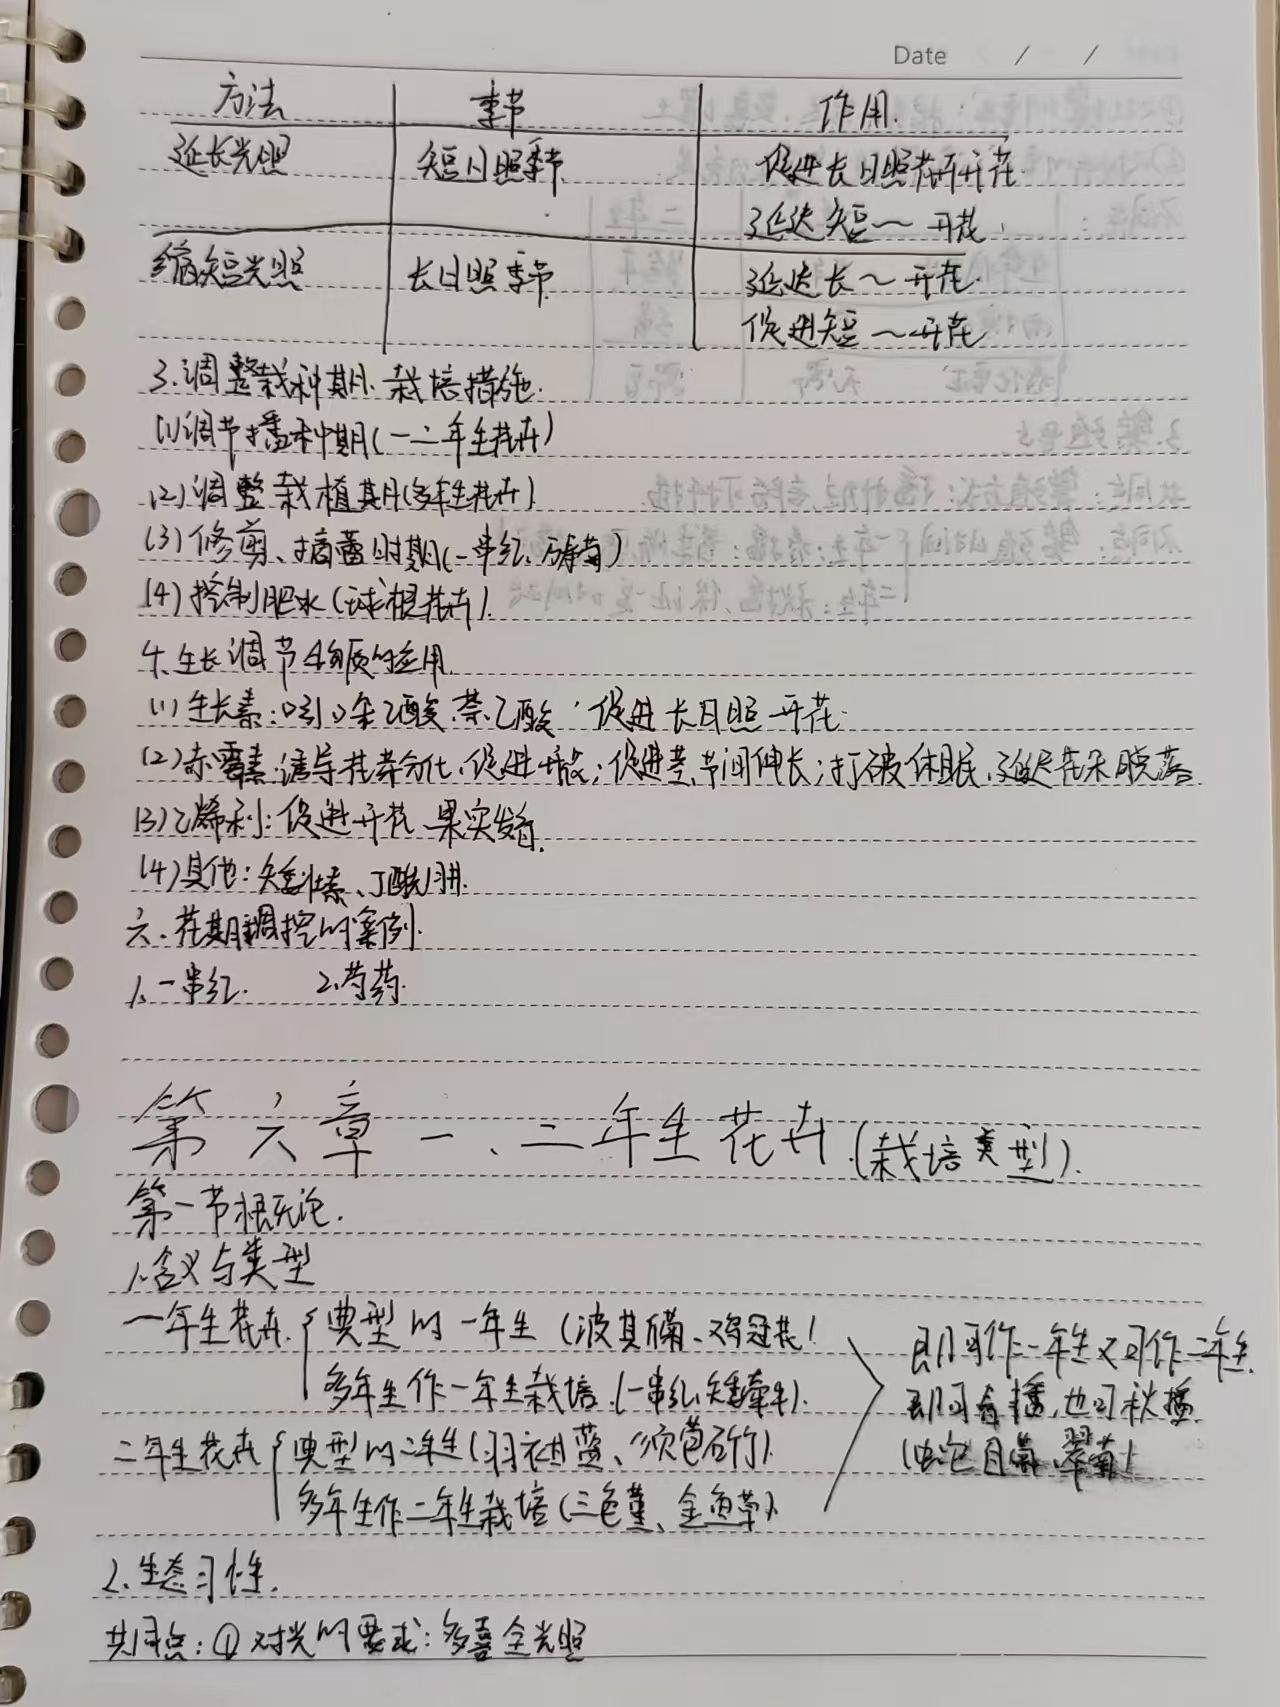 Date / /
方法 季节 作用
延长光照 短日照季节 促进长日照花卉开花
延迟短～开花
缩短光照 长日照季节 延迟长～开花
促进短～开花
3.调整栽种期、栽培措施
(1)调节播种期(一二年生花卉)
(2)调整栽植期(多年生花卉)
(3)修剪、摘蕾时期(一串红、万寿菊)
(4)控制肥水(球根花卉).
4.生长调节物质的应用
(1)生长素:吲哚乙酸、萘乙酸:促进长日照开花
(2)赤霉素:诱导花芽分化,促进增放;促进茎、节间伸长;打破休眠,延迟花朵脱落
(3)乙烯利:促进开花、果实发育.
(4)其他:矮壮素、丁酰肼.
六.花期调控的案例.
1.一串红. 2.芍药.
第六章 一、二年生花卉.(栽培类型).
第一节概论.
1.含义与类型
一年生花卉{典型的一年生(波斯菊、鸡冠花)
多年生作一年生栽培.(一串红、矮牵牛).
即可作一年生又可作二年生.
即可春播,也可秋播.
二年生花卉{典型的二年生(羽衣甘蓝、须苞石竹).
多年生作二年生栽培(三色堇、金鱼草)
2.生态习性.
共同点:①对光的要求:多喜全光照